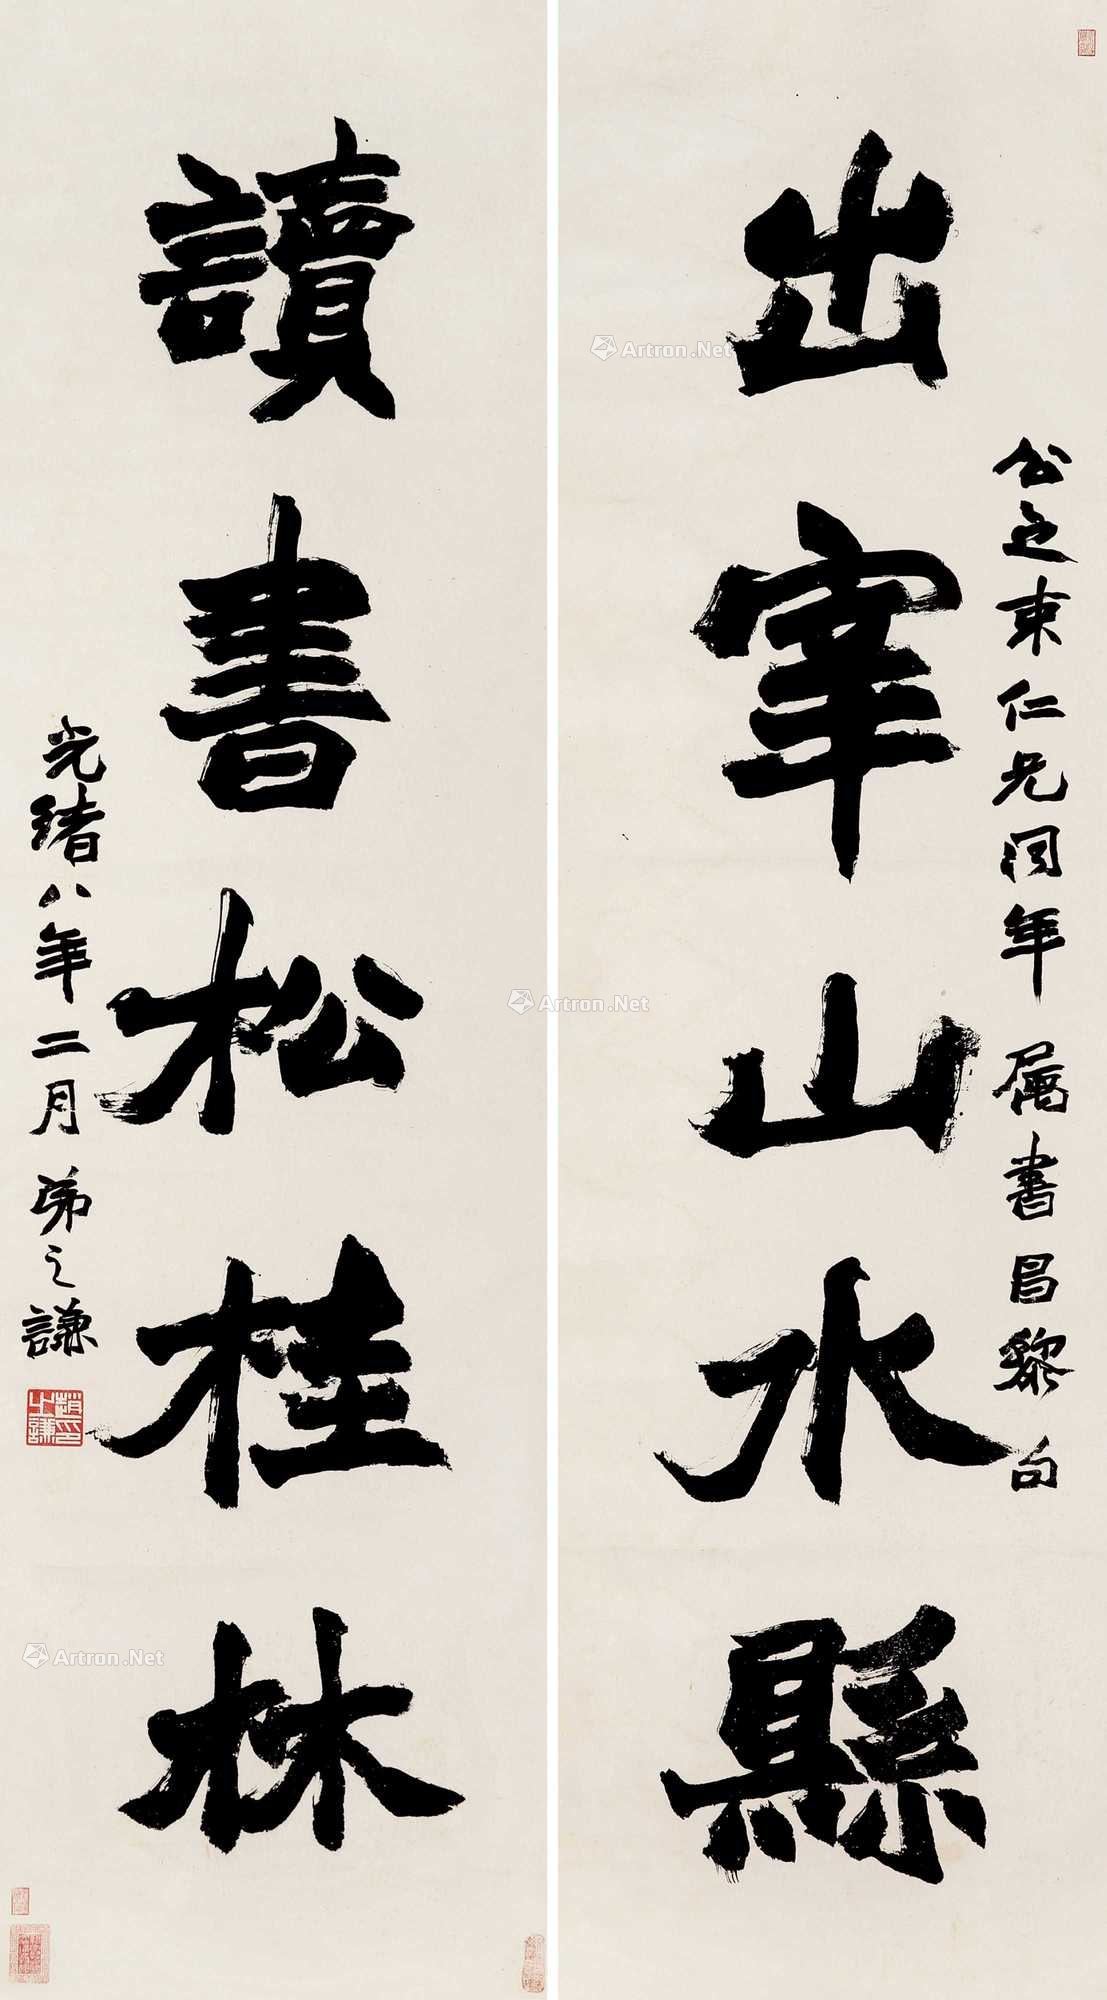 出宰山水縣
公之東仁兄同年屬書昌黎句
讀書松桂林
光緒八年二月弟之謙
趙之謙印
Artron.Net
Artron.Net
Artron.Net
Artron.Net